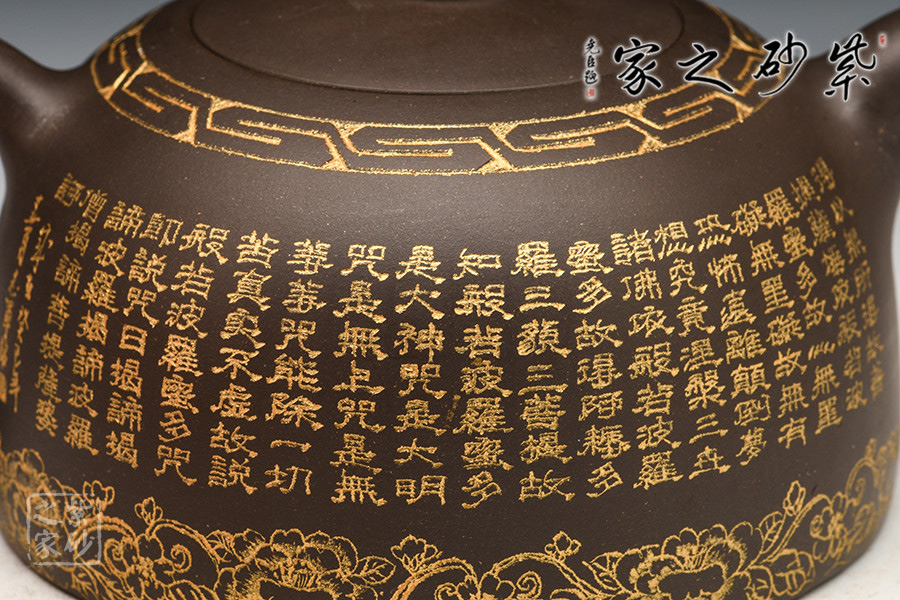 紫砂之家
得以無所得故菩
提薩埵依般若波
羅蜜多故心無罣
礙無罣礙故無有
恐怖遠離顛倒夢
想究竟涅槃三世
諸佛依般若波羅
蜜多故得阿耨多
羅三藐三菩提故
知般若波羅蜜多
是大神咒是大明
咒是無上咒是無
等等咒能除一切
苦真實不虛故說
般若波羅蜜多咒
即說咒曰揭諦揭
諦波羅揭諦波羅
僧揭諦菩提薩婆
訶
紫砂之家